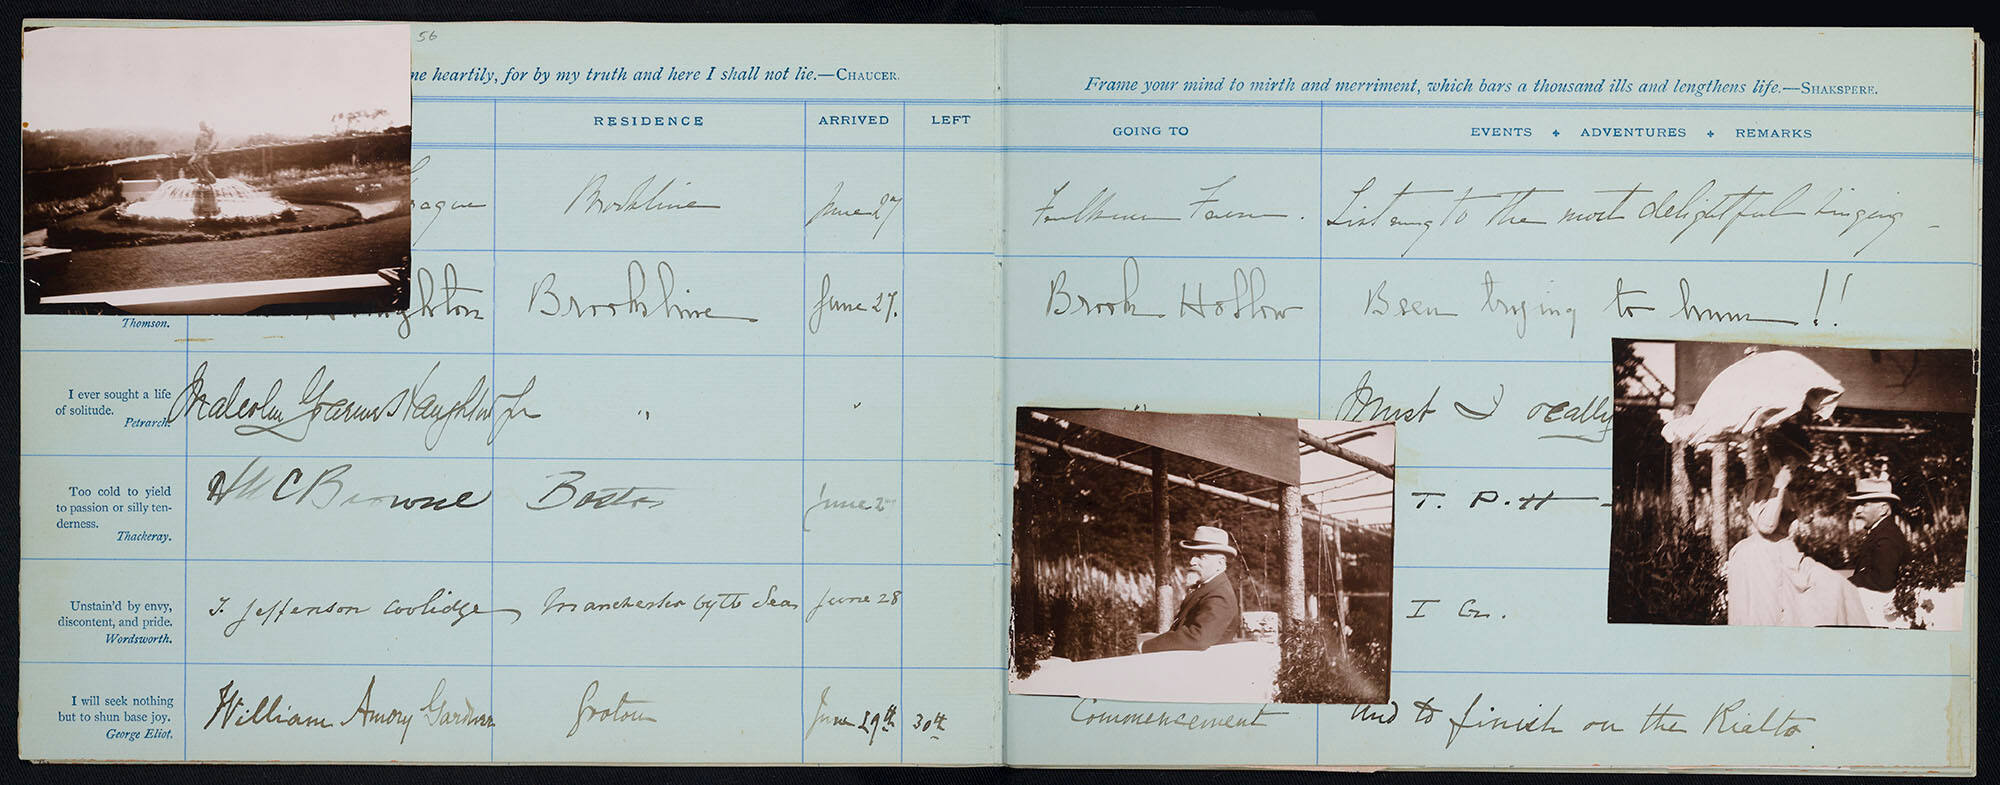 56
me heartily, for by my truth and here I shall not lie.—CHAUCER.
RESIDENCE ARRIVED LEFT
Brookline June 27
Thomson.
ghton Brookline June 27.
I ever sought a life
of solitude.
Petrarch.
Malcolm Graeme Haughton Jr " "
Too cold to yield
to passion or silly ten-
derness.
Thackeray.
Browne Boston June
Unstain'd by envy,
discontent, and pride.
Wordsworth.
T. Jefferson Coolidge Manchester by the Sea June 28
I will seek nothing
but to shun base joy.
George Eliot.
William Amory Gardner Groton June 29th 30th
Frame your mind to mirth and merriment, which bars a thousand ills and lengthens life.—SHAKSPERE.
GOING TO EVENTS ADVENTURES REMARKS
Faulkner Farm. Listening to the most delightful singing –
Brook Hollow Been trying to hum !!
Must I really
T. P. H –
I G.
Commencement And to finish on the Rialto.